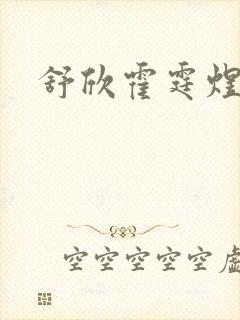 舒欣霍霆煌
空空空空空虚